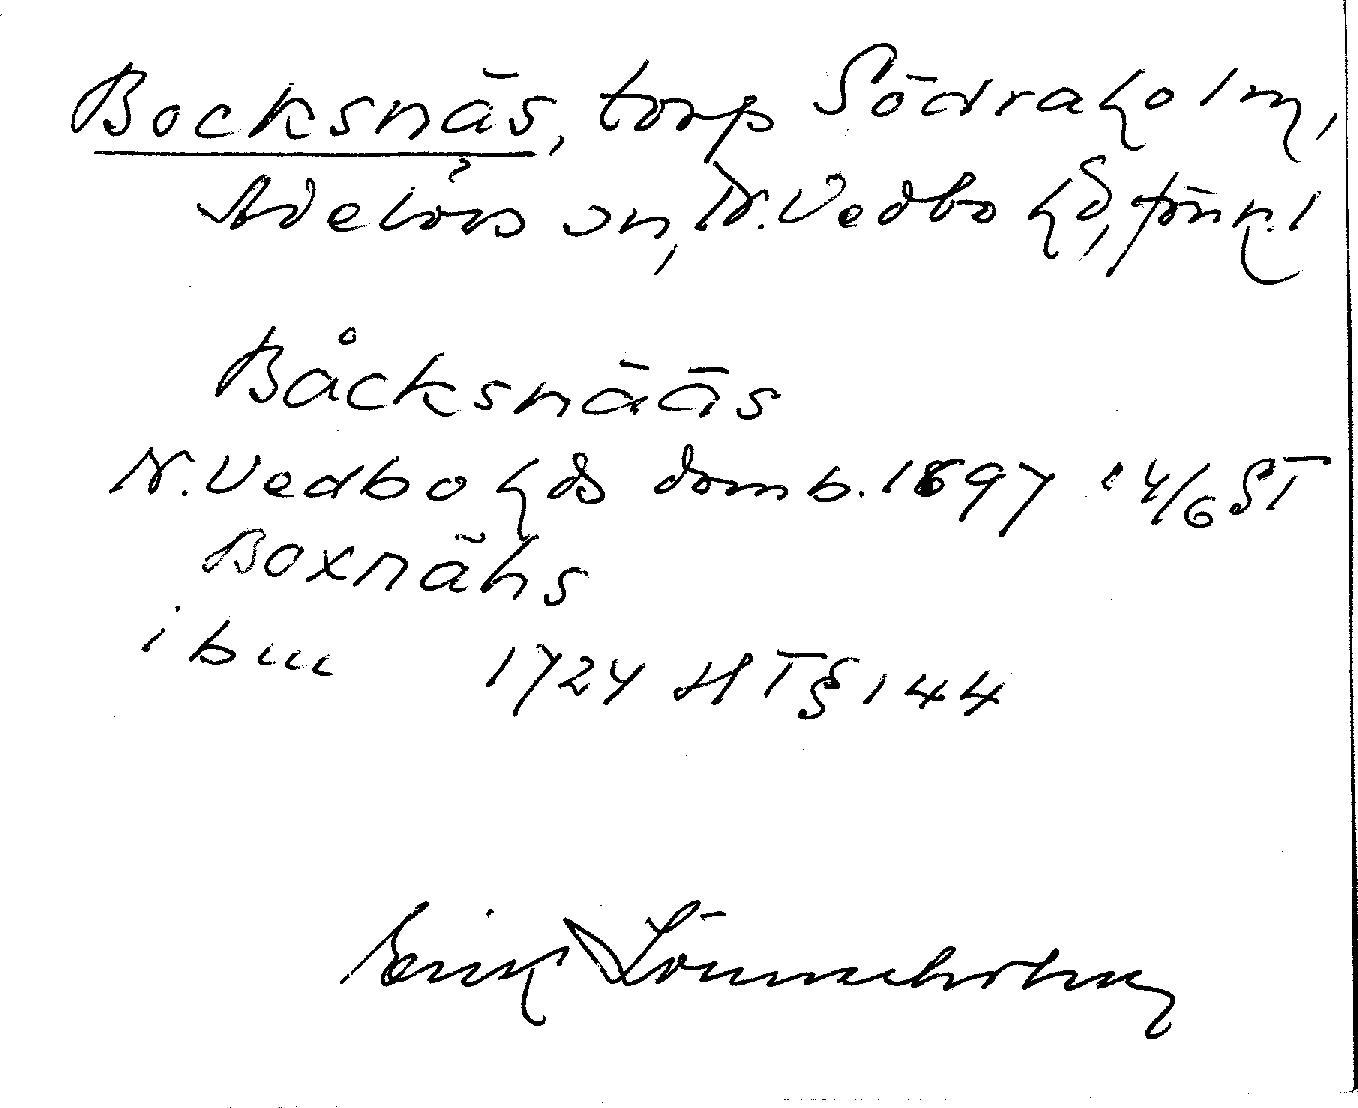 Bocksnäs, torp Södraholm,
Adelövs sn, N. Vedbo hd, Jönk. l
Båcksnääs
N. Vedbo hds domb. 1697 14/6 § 1
Boxnähs
ibm 1724 HT § 144
Erik Lönneholm